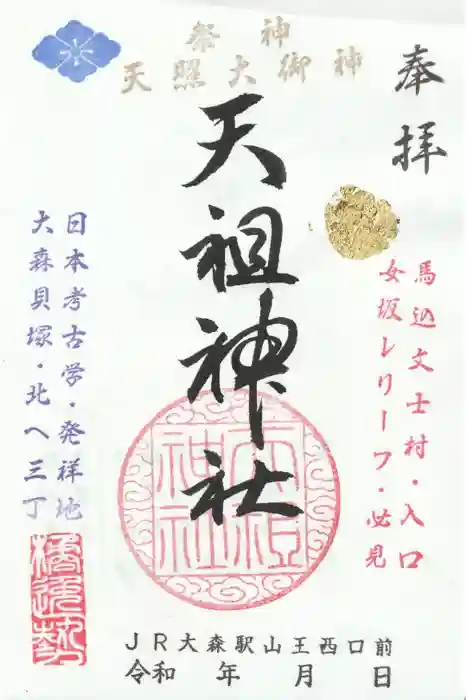 奉拝
祭神
天照大御神
天祖神社
馬込文士村・入口
女坂レリーフ・必見
日本考古学・発祥地
大森貝塚・北へ三丁
天祖
神社
JR大森駅山王西口前
令和 年 月 日